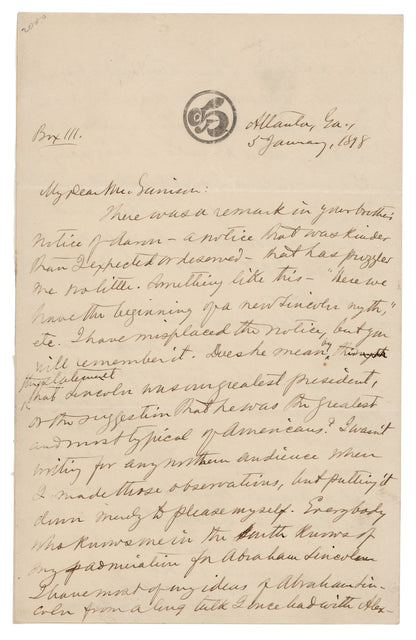 Box 111.
Atlanta, Ga.,
5 January, 1898
My dear Mr. Garrison:
There was a remark in your brother's
notice of Aaron – a notice that was kinder
than I expected or deserved – that has puzzled
me no little. Something like this – "Here we
have the beginning of a new Lincoln myth,"
etc. I have misplaced the notice, but you
will remember it. Does he mean by
the statement
that Lincoln was our greatest president,
or the suggestion that he was the greatest
and most typical of Americans? I wasn't
writing for any northern audience when
I made those observations, but putting it
down merely to please myself. Everybody
who knows me in the South knows of
my admiration for Abraham Lincoln
I have most of my ideas of Abraham Lin-
coln from a long talk I once had with Alex-